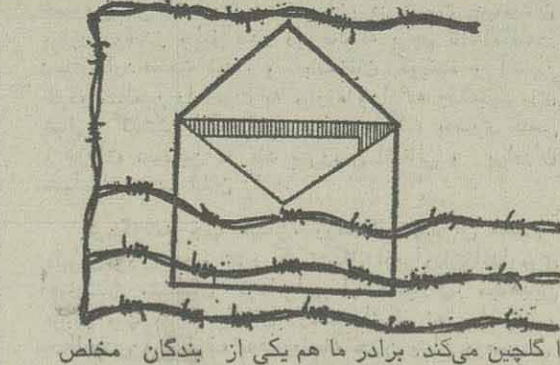 گلچین می‌کند. برادر ما هم یکی از بندگان مخلص